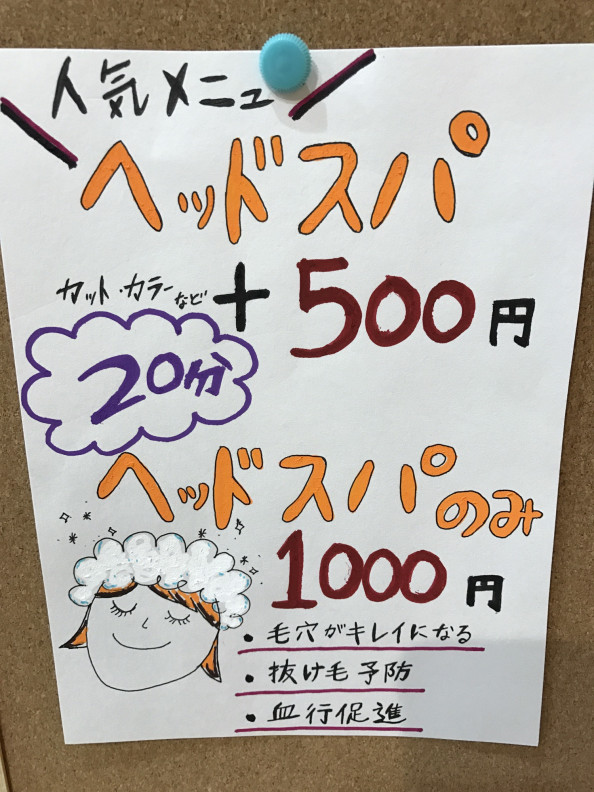 人気メニュー
ヘッドスパ
カット・カラーなど+500円
20分
ヘッドスパのみ
1000円
・毛穴がキレイになる
・抜け毛予防
・血行促進